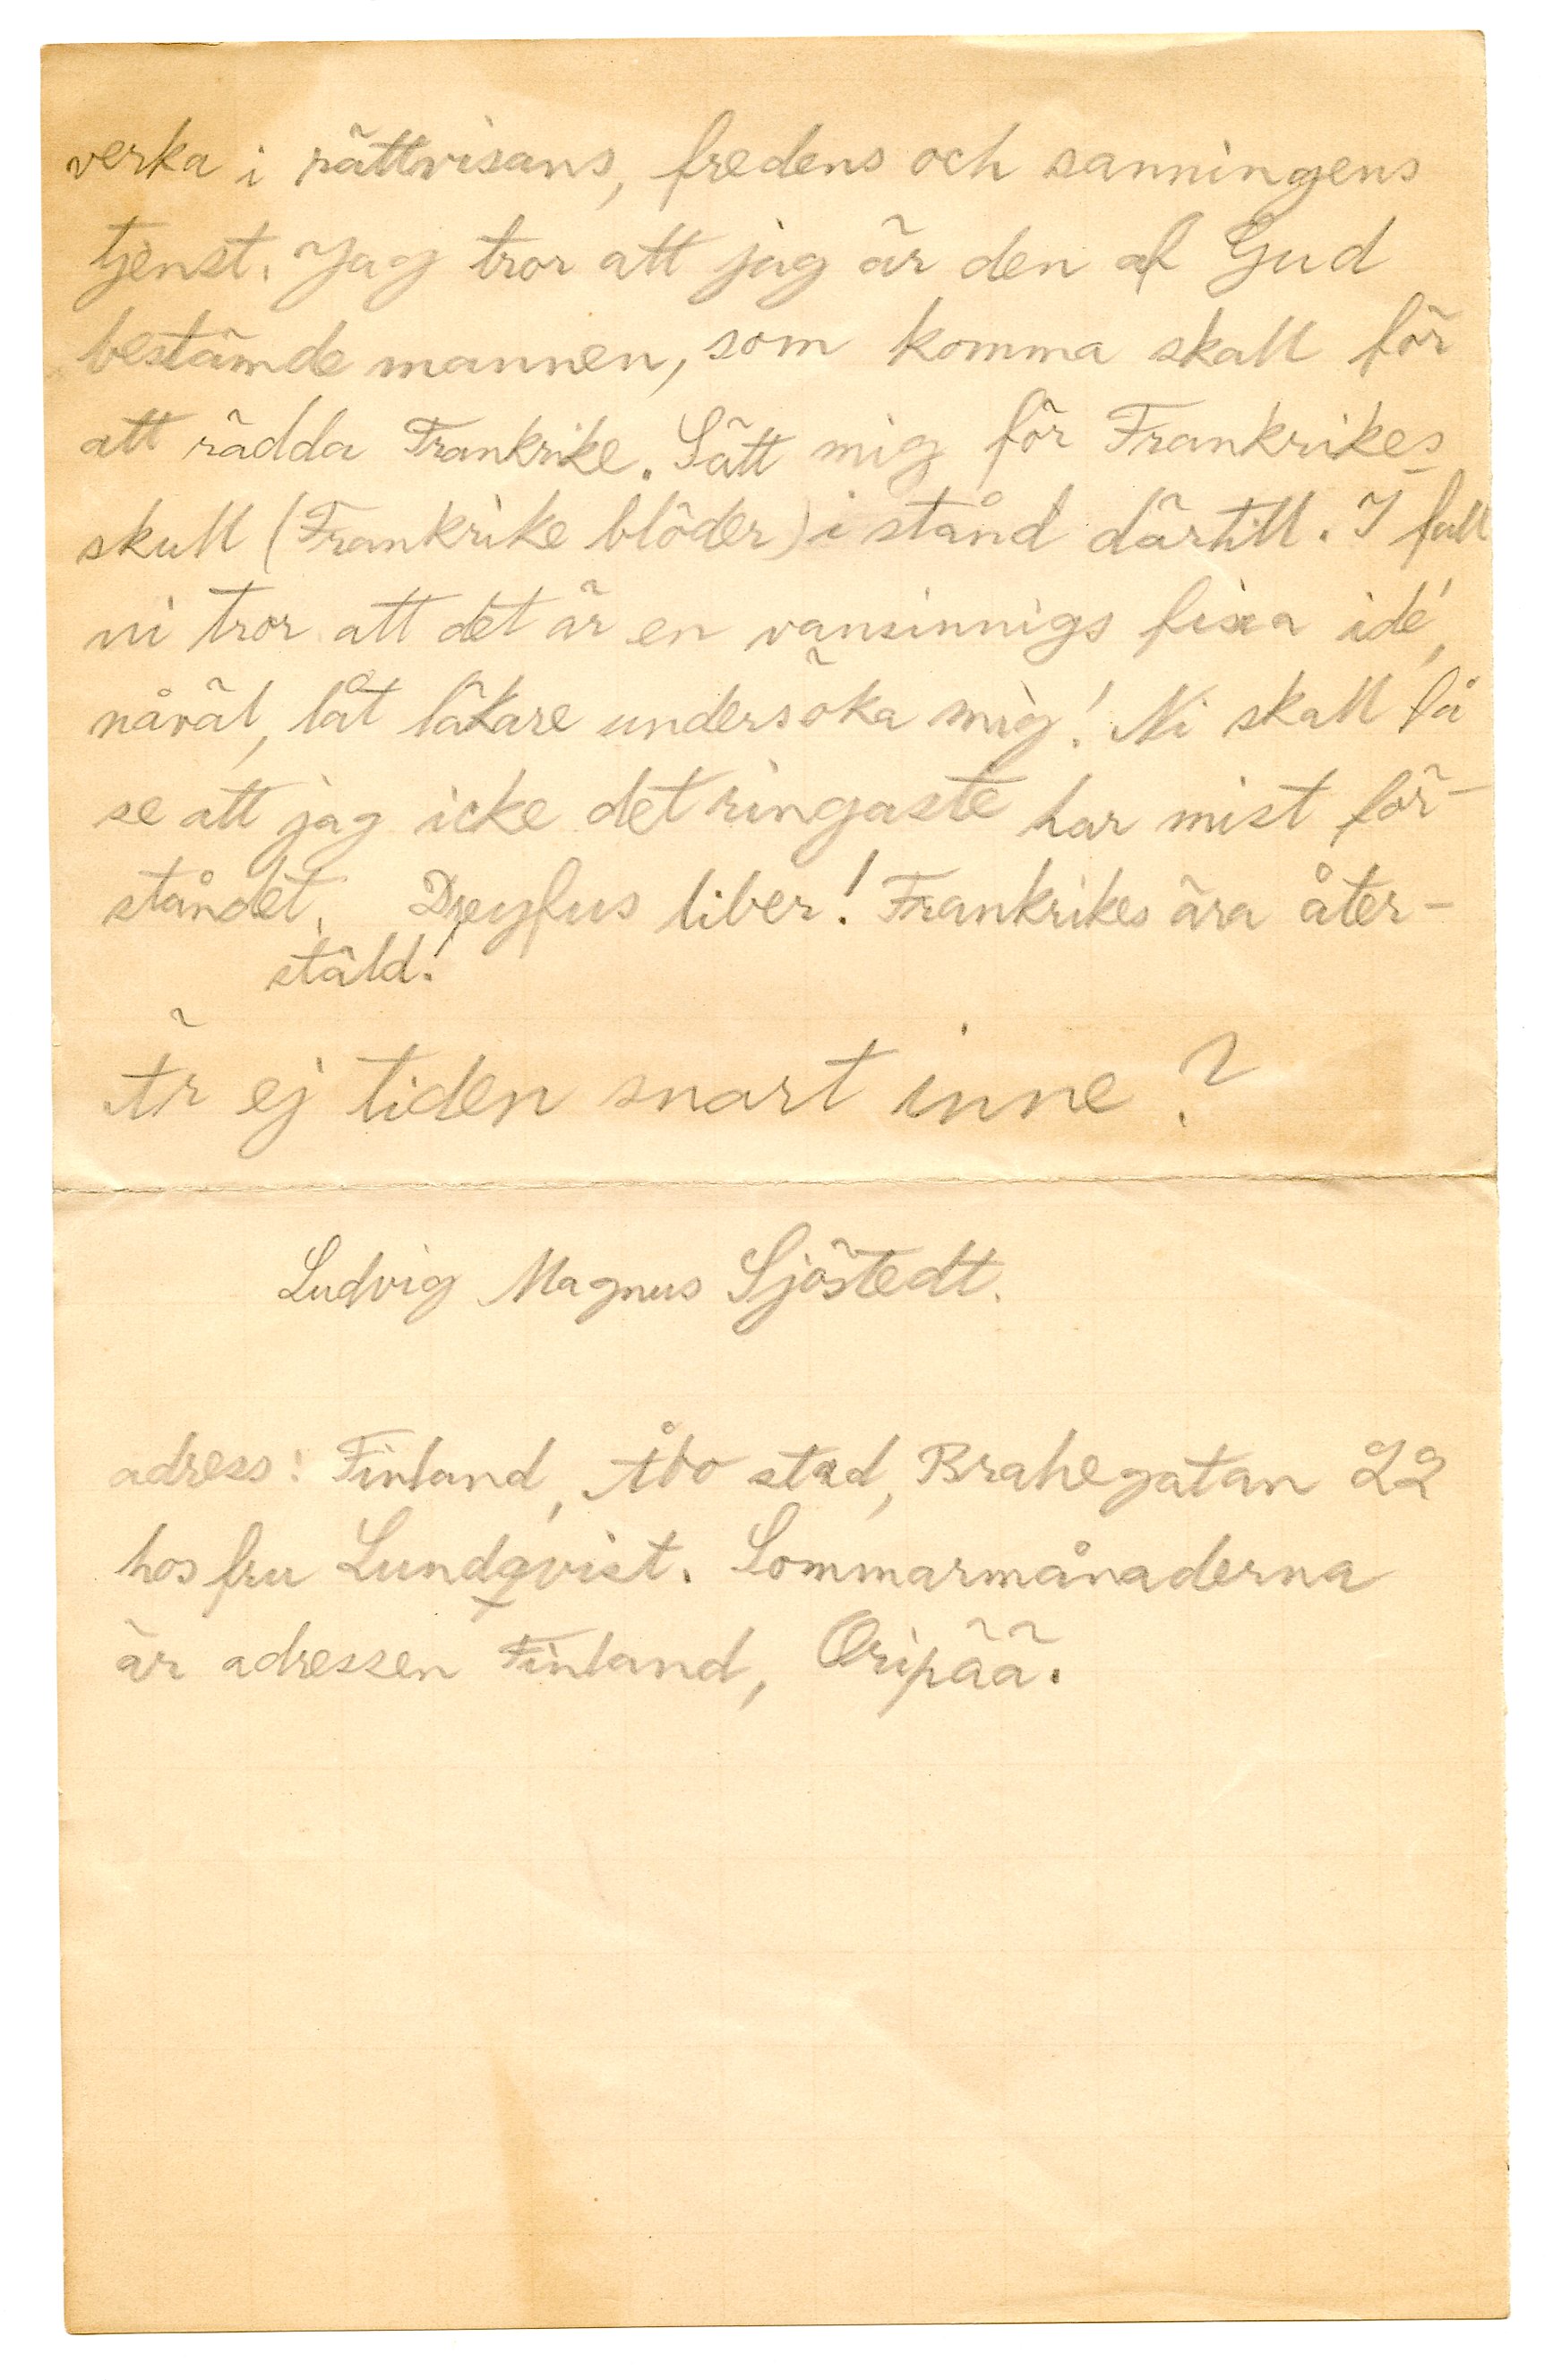 verka i rättvisans, fredens och sanningens
tjenst. Jag tror att jag är den af Gud
bestämde mannen, som komma skall för
att rädda Frankrike. Sätt mig för Frankrikes
skull (Frankrike blöder) i stånd därtill. I fall
ni tror att det är en vansinnigs fixa idé,
nåväl, låt läkare undersöka mig! Ni skall få
se att jag icke det ringaste har mist för-
ståndet. Dreyfus liber! Frankrikes ära åter-
stäld!
Är ej tiden snart inne?
Ludvig Magnus Sjöstedt.
adress: Finland, Åbo stad, Brahegatan 22
hos fru Lundqvist. Sommarmånaderna
är adressen Finland, Oripää.